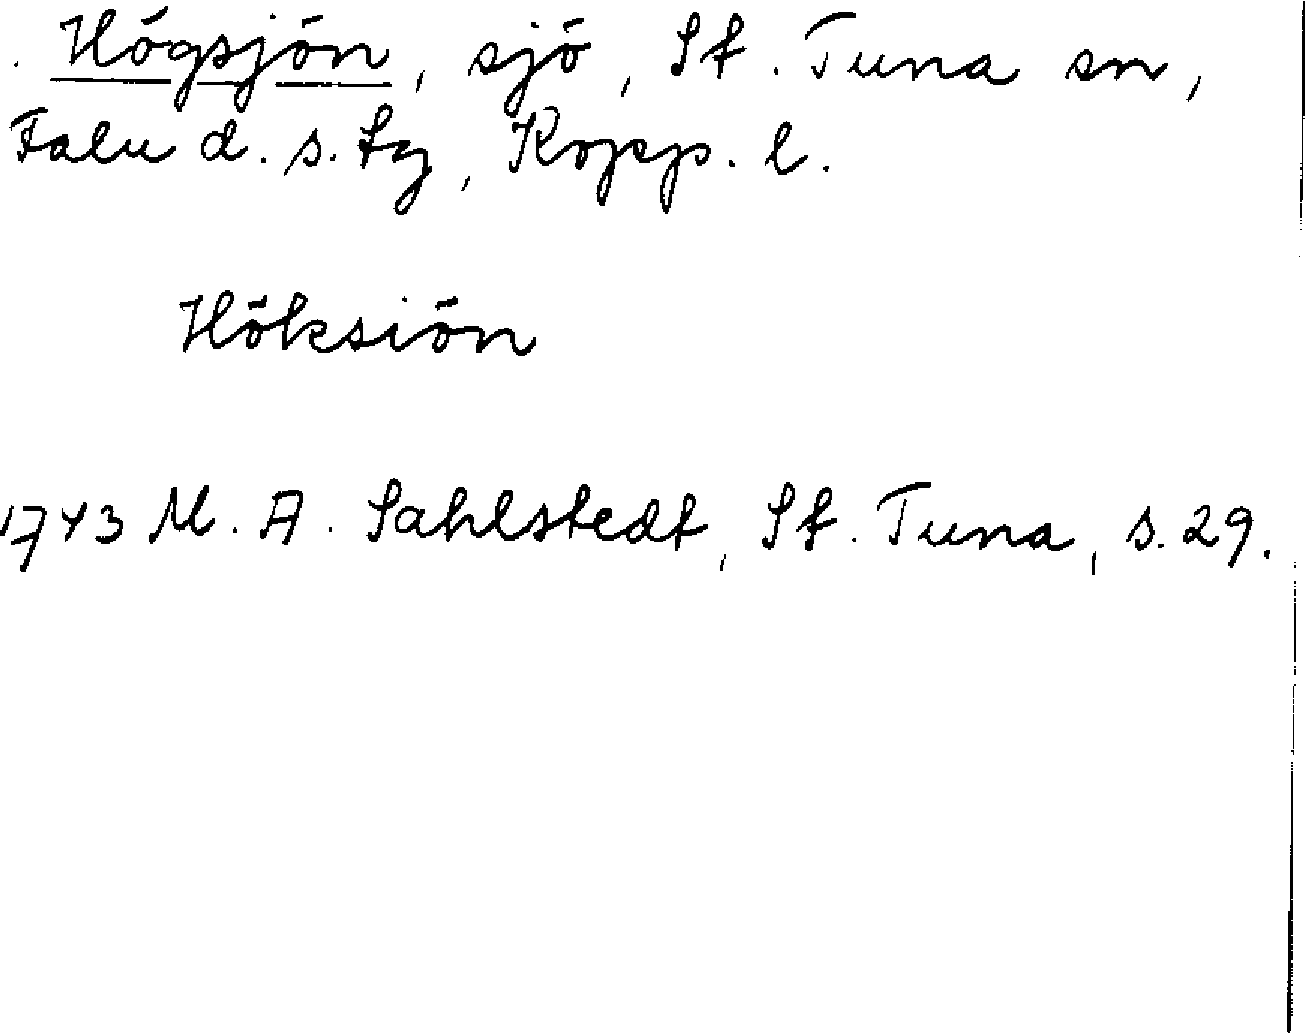 Högsjön, sjö, St. Tuna sn,
Falu d. s. tg, Kopp. l.
Höksiön
1743 M. A. Sahlstedt, St. Tuna, s. 29.